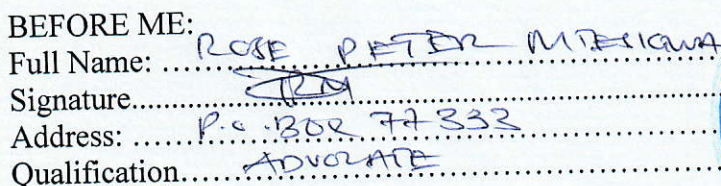 BEFORE ME:
Full Name: ROSE PETER
Signature
Address: P.O.BOX 77333
Qualification ADVOCATE